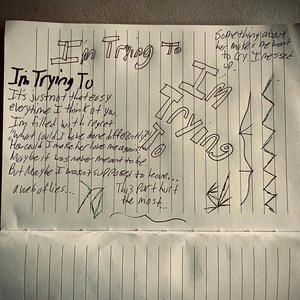 I'm Trying To
Something about
her makes me want
to cry I messed
up
I'm Trying To
It's just not that easy
everytime I think of you,
I'm filled with regret
"What could I have done differently?"
How could I make her love me again
Maybe it was never meant to be
But Maybe I wasn't supposed to leave...
a web of lies...
I'm
Trying
TO
This Part hurt
the most...